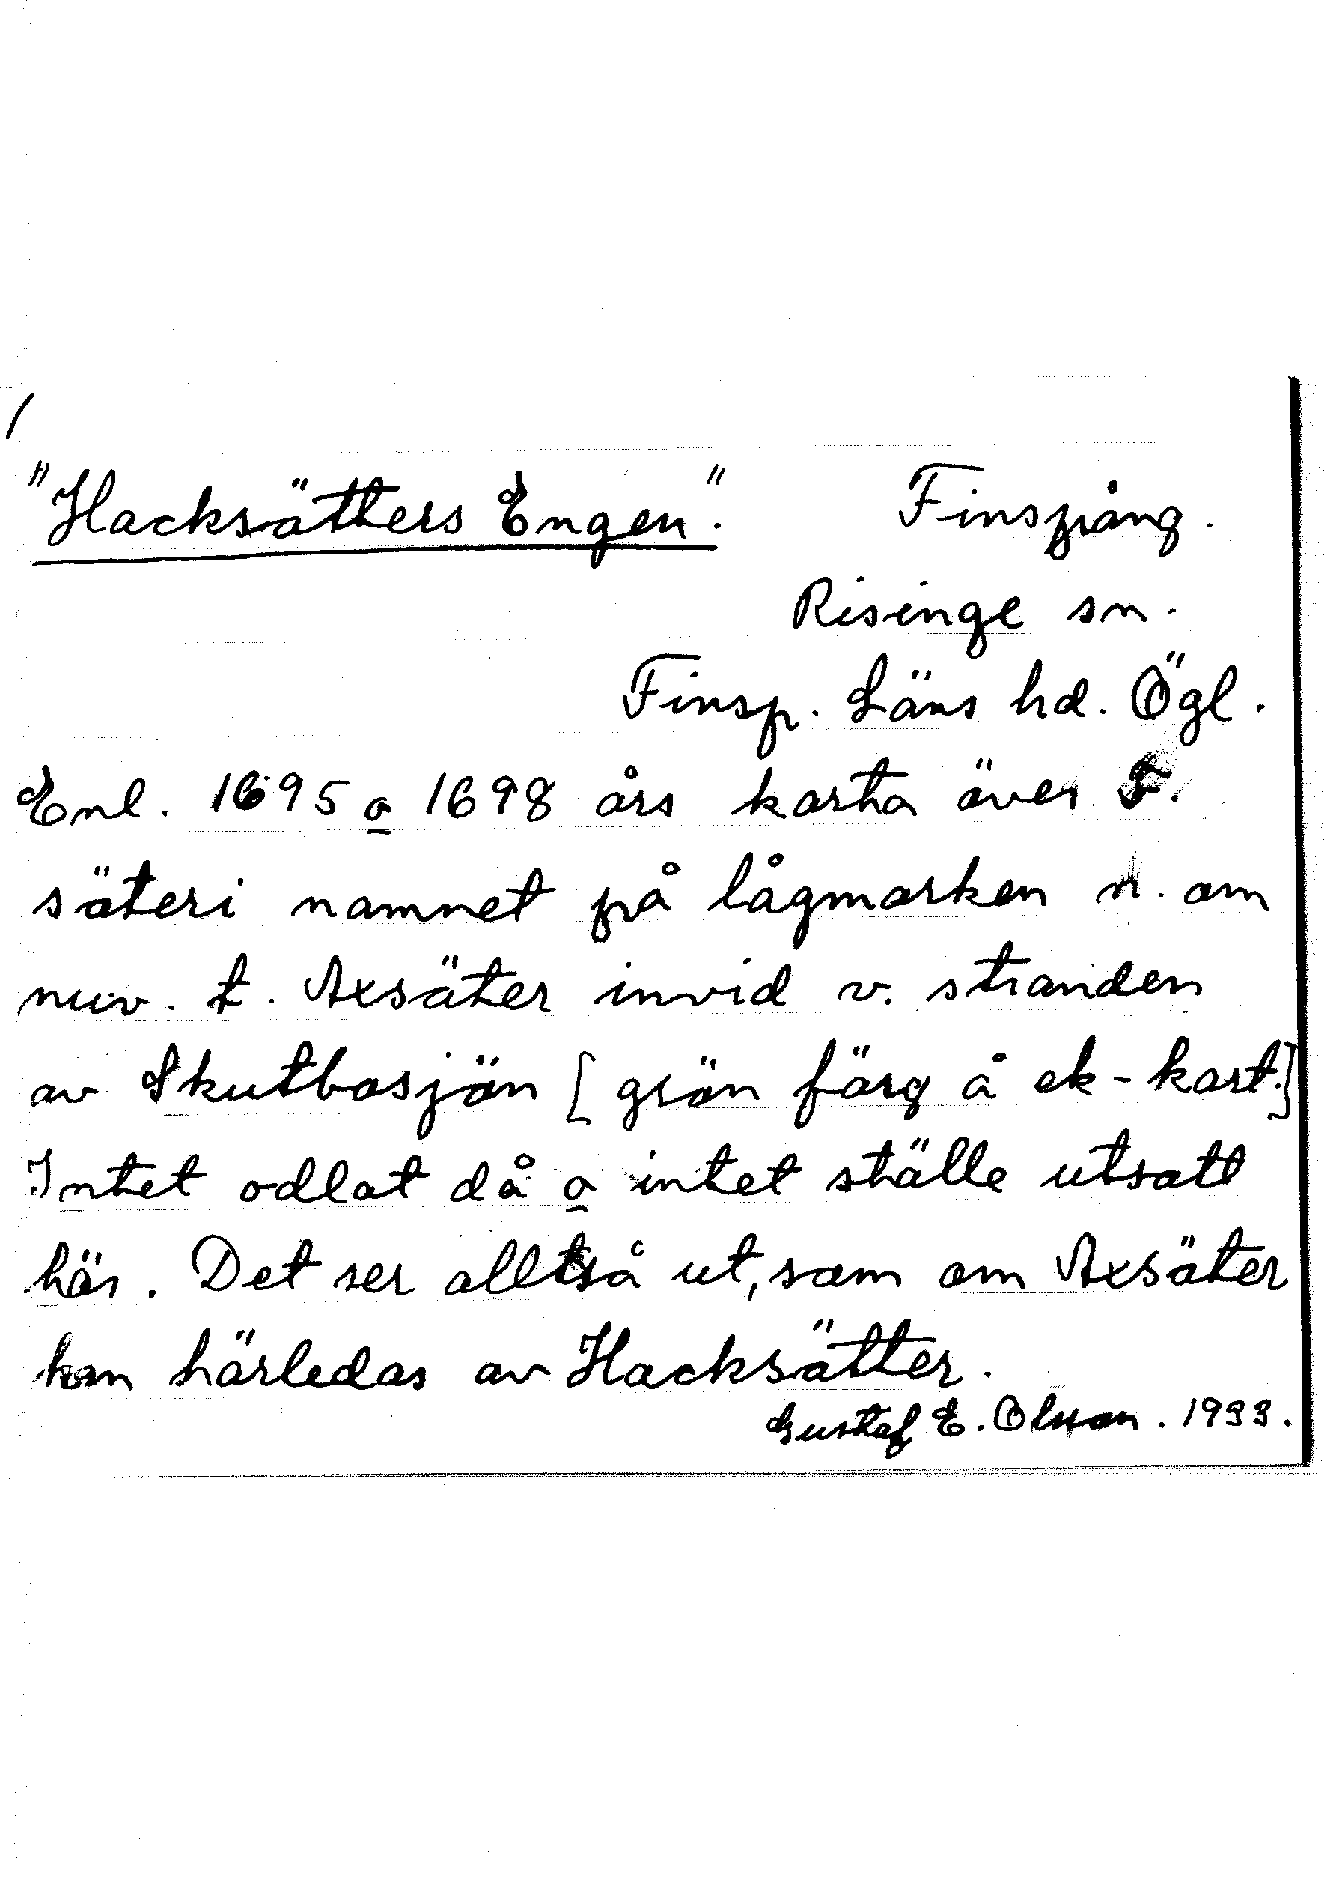 /
"Hacksätters Engen". Finspång.
Risinge sn.
Finsp. Läns hd. Ögl.
Enl. 1695 o 1698 års karta över F.
säteri namnet på lågmarken n. om
nuv. t. Axsäter invid v. stranden
av Skutbosjön [grön färg å ek-kart.]
Intet odlat då o intet ställe utsatt
här. Det ser alltså ut, som om Axsäter
kan härledas av Hacksätter.
Gustaf E. Olsson. 1933.